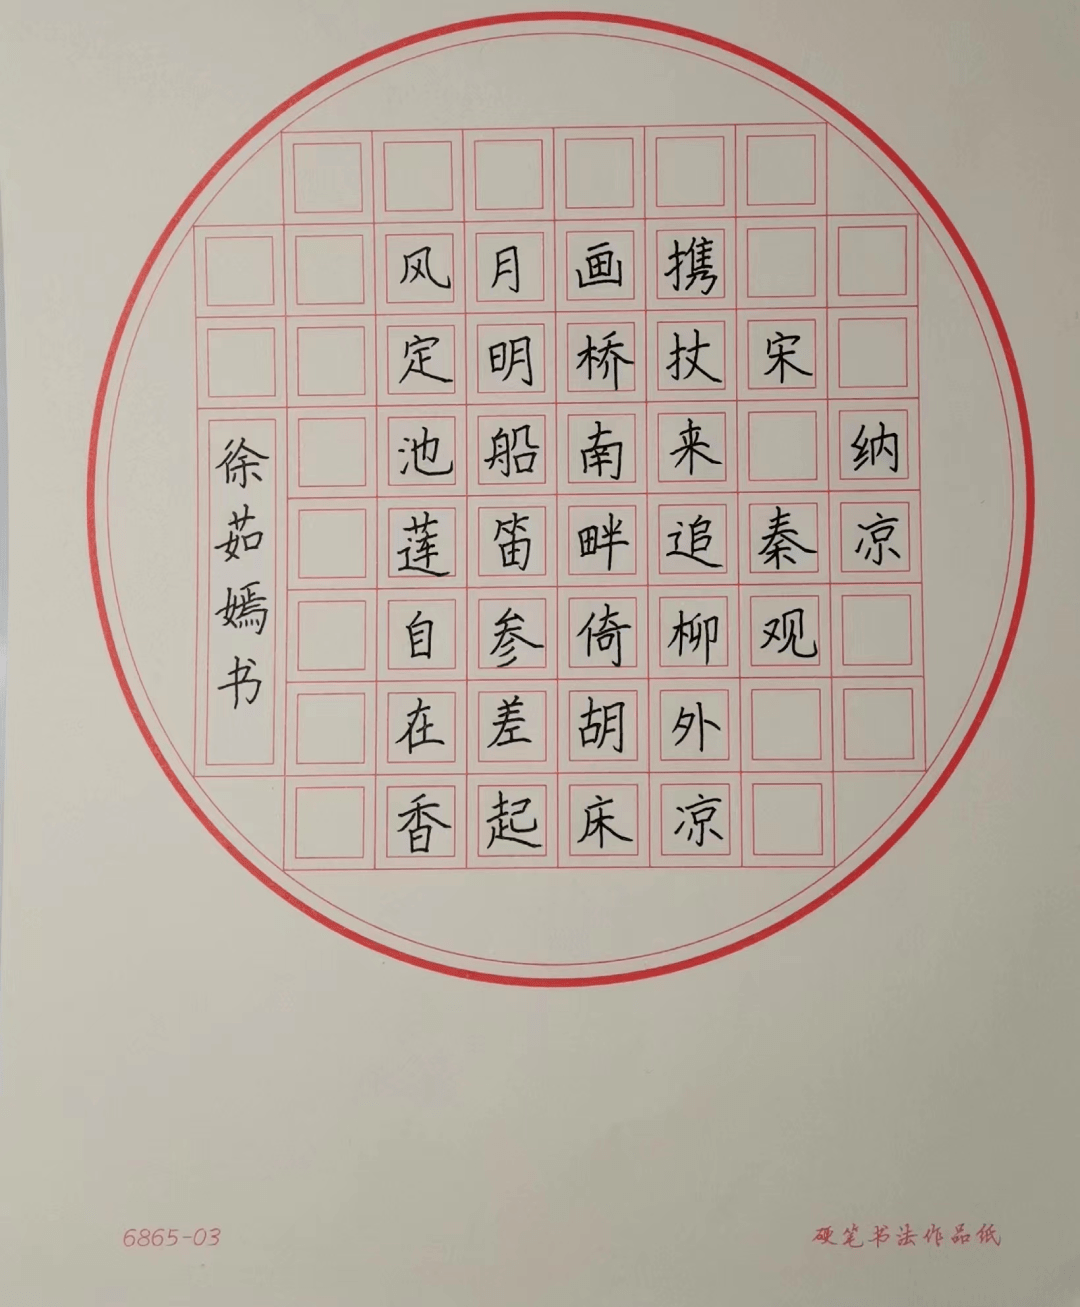 纳凉
宋 秦观
携杖来追柳外凉
画桥南畔倚胡床
月明船笛参差起
风定池莲自在香
徐茹嫣书
6865-03
硬笔书法作品纸